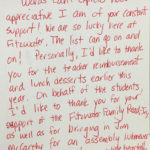 Words can't express how
appreciative I am of your constant
support! We are so lucky here at
Fitzwater. The list can go on and
on! Personally, I'd like to thank
you for the teacher reimbursement
and lunch desserts earlier this
year. On behalf of the students
I'd like to thank you for your
support @ the Fitzwater Family Reading
as well as for bringing in John
McCarthy for an assembly
you